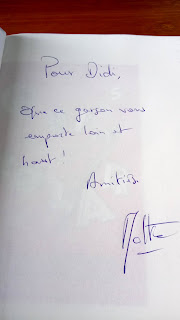 Pour Didi,
Que ce garçon vous
emporte loin et
haut !
Amitiés